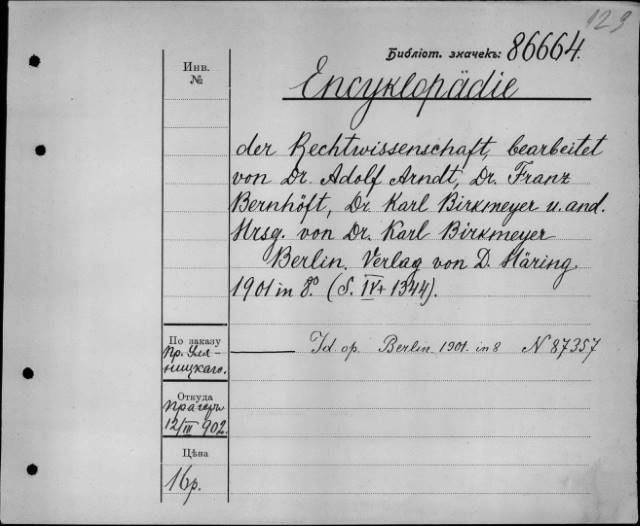 123
Библіот. значекъ: 86664.
Инв.
№
Encyklopädie
der Rechtwissenschaft, bearbeitet
von Dr. Adolf Arndt, Dr. Franz
Bernhöft, Dr. Karl Birkmeyer u. and.
Hrsg. von Dr. Karl Birkmeyer
Berlin. Verlag von D. Häring
1901 in 8º. (S. IV + 1344).
По заказу
Пр. Уля-
ницкаго.
Id. op. Berlin 1901. in 8 N 87357
Откуда
Прагеръ
12/III 902.
Цѣна
16 р.